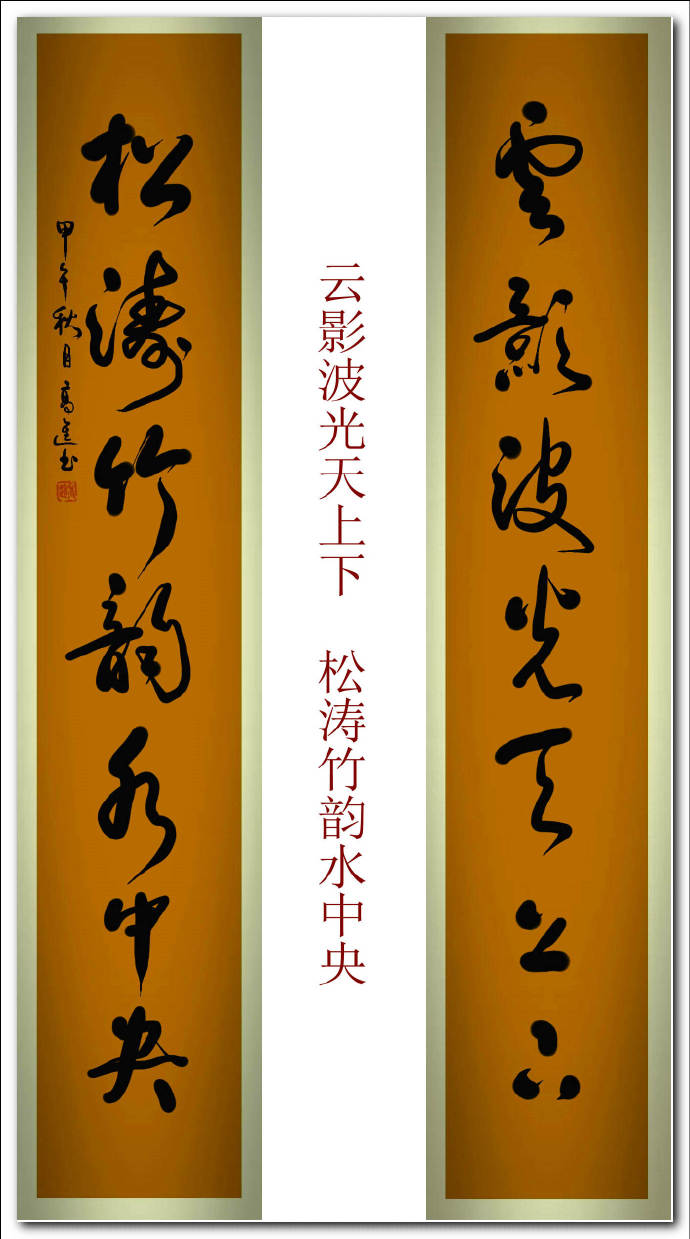 雲影波光天上下
云影波光天上下
松涛竹韵水中央
松濤竹韻水中央
甲午秋月高進书